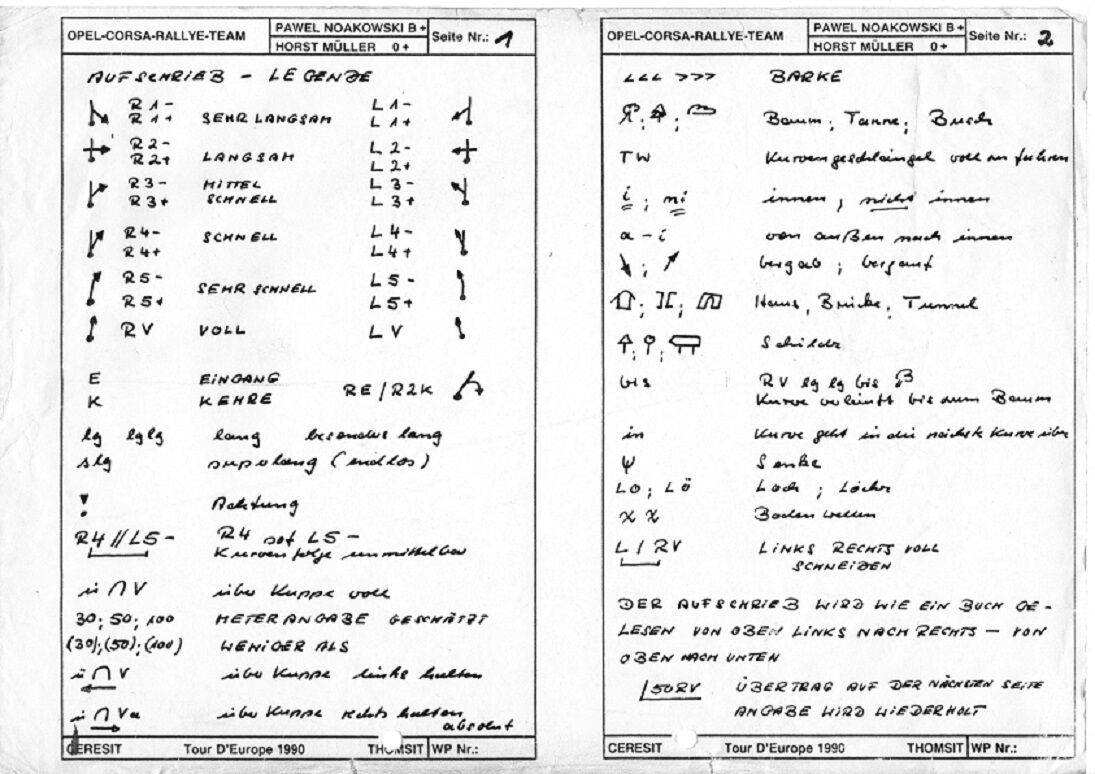 OPEL-CORSA-RALLYE-TEAM PAWEL NOAKOWSKI B+ Seite Nr.: 1
HORST MÜLLER 0+
AUFSCHRIEB - LEGENDE
R1- L1-
R1+ SEHR LANGSAM L1+
R2- L2-
R2+ LANGSAM L2+
R3- MITTEL L3-
R3+ SCHNELL L3+
R4- SCHNELL L4-
R4+ L4+
R5- SEHR SCHNELL L5-
R5+ L5+
RV VOLL LV
E EINGANG
K KEHRE RE/R2K
lg lglg lang besonders lang
slg superlang (endlos)
! Achtung
R4//L5- R4 sof L5-
Kurvenfolge unmittelbar
ü ∩ V über Kuppe voll
30; 50; 100 METERANGABE GESCHÄTZT
(30);(50);(100) WENIGER ALS
ü ∩ V über Kuppe links halten
ü ∩ Va über Kuppe rechts halten
absolut
CERESIT Tour D'Europe 1990 THOMSIT WP Nr.:
OPEL-CORSA-RALLYE-TEAM PAWEL NOAKOWSKI B+ Seite Nr.: 2
HORST MÜLLER 0+
<<< >>> BARKE
Baum; Tanne; Busch
TW Kurvengeschlängel voll zu fahren
i; ni innen, nicht innen
a - i von außen nach innen
bergab; bergauf
Haus, Brücke, Tunnel
Schilder
bis RV lg lg bis
Kurve verläuft bis zum Baum
in Kurve geht in die nächste Kurve über
Ψ Senke
LO; LÖ Loch; Löcher
X X Bodenwellen
L / RV LINKS RECHTS VOLL
SCHNEIDEN
DER AUFSCHRIEB WIRD WIE EIN BUCH GE-
LESEN VON OBEN LINKS NACH RECHTS - VON
OBEN NACH UNTEN
50RV ÜBERTRAG AUF DER NÄCHSTEN SEITE
ANGABE WIRD WIEDERHOLT
CERESIT Tour D'Europe 1990 THOMSIT WP Nr.: